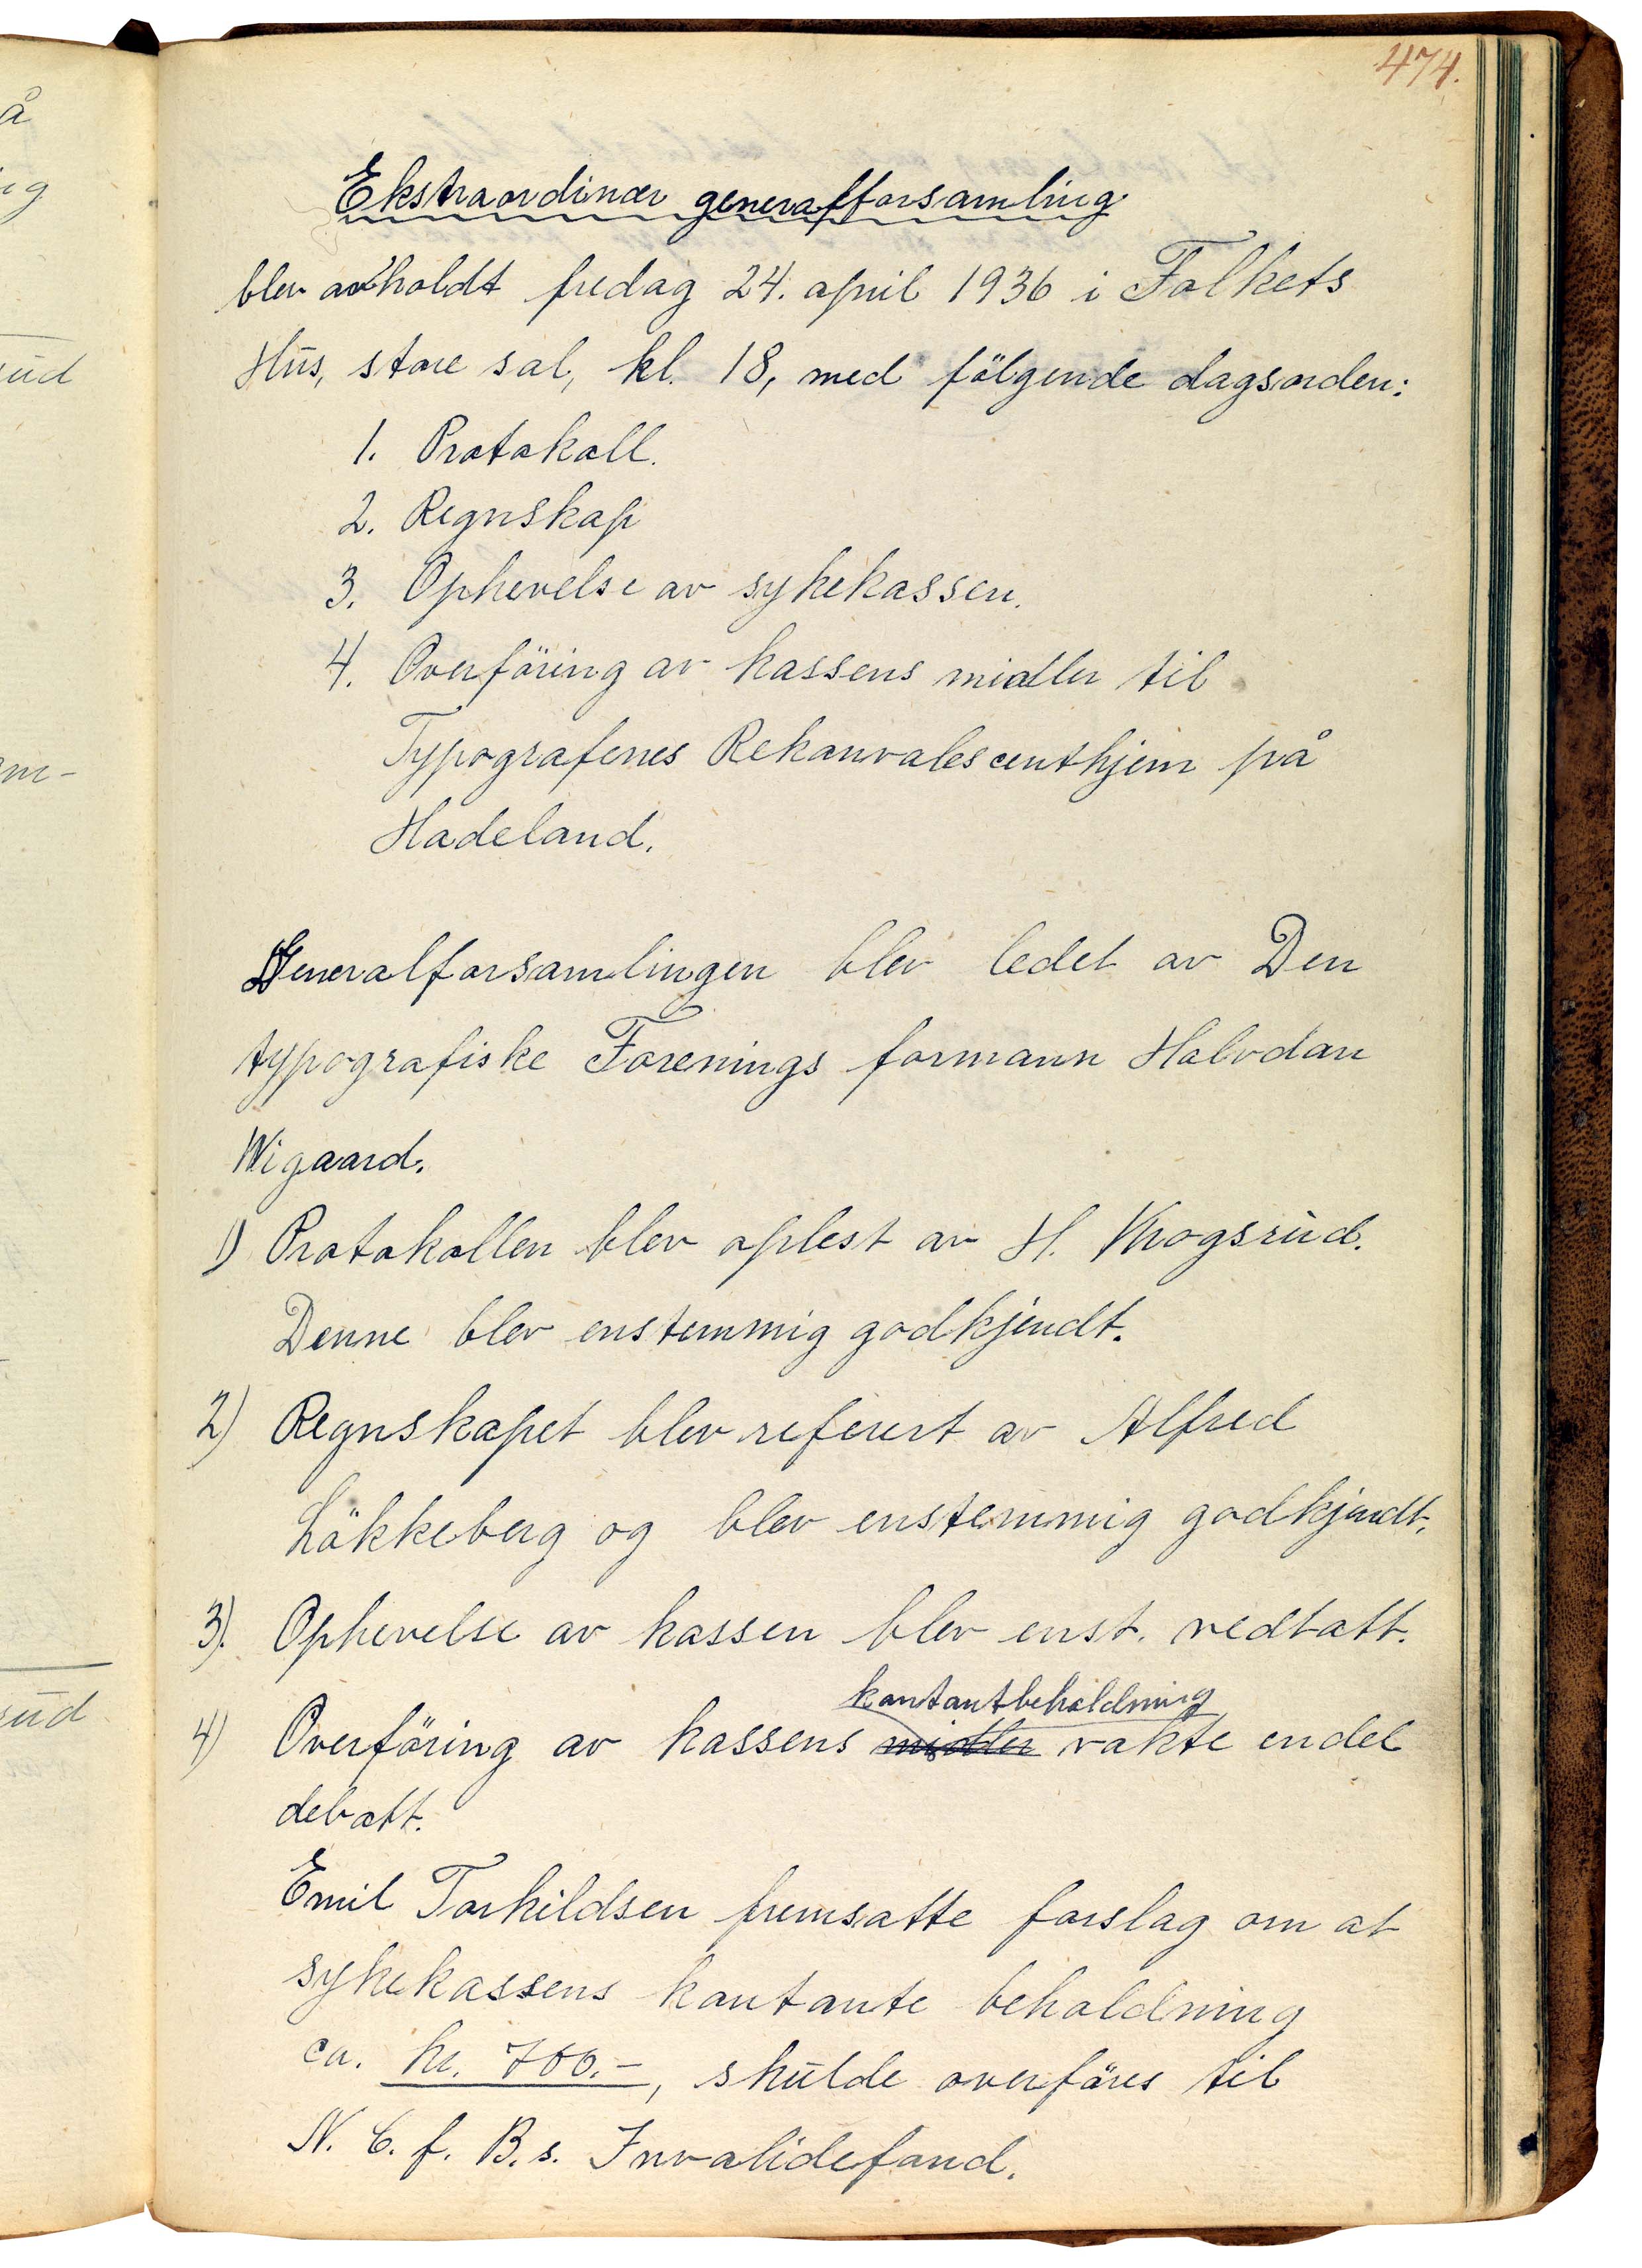 474.
Ekstraordinær generalforsamling
blev avholdt fredag 24. april 1936 i Folkets
Hus, store sal, kl. 18, med følgende dagsorden:
1. Protokoll.
2. Regnskap
3. Ophevelse av sykekassen.
4. Overføring av kassens midler til
Typografenes Rekonvalescenthjem på
Hadeland.
Generalforsamlingen blev ledet av Den
typografiske Forenings formann Halvdan
Wigaard.
1) Protokollen blev oplest av H. Krogsrud.
Denne blev enstemmig godkjendt.
2) Regnskapet blev referert av Alfred
Løkkeberg og blev enstemmig godkjendt.
3). Ophevelse av kassen blev enst. vedtatt.
kontantbeholdning
4) Overføring av kassens midler vakte endel
debatt.
Emil Torkildsen fremsatte forslag om at
sykekassens kontante beholdning
ca. kr. 700.-, skulde overføres til
N. C. f. B.s. Invalidefond.
å
ig
rud
om-
rud